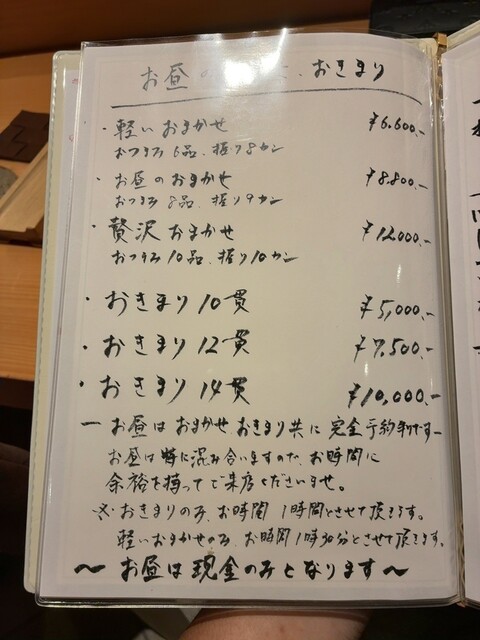 お昼の 、おきまり
・軽いおまかせ ¥6.600.-
おつまみ6品、握り8カン
・お昼のおまかせ ¥8.800.-
おつまみ8品、握り9カン
・贅沢おまかせ ¥12000.-
おつまみ10品、握り10カン
・おきまり10貫 ¥5,000.-
・おきまり12貫 ¥7.500.-
・おきまり14貫 ¥10,000.-
ー お昼はおまかせ、おきまり共に完全予約制ですー
お昼は特に混み合いますので、お時間に
余裕を持ってご来店くださいませ。
※おきまりのみ、お時間1時間とさせて頂きます。
軽いおまかせのみ、お時間1時30分とさせて頂きます。
〜お昼は現金のみとなります〜